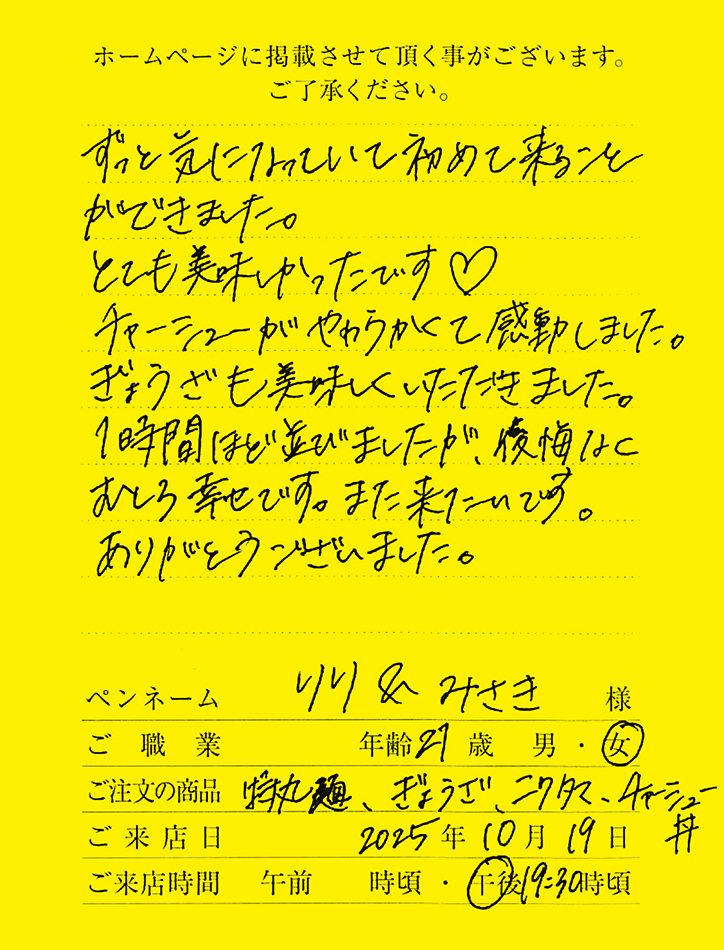 ホームページに掲載させて頂く事がございます。
ご了承ください。
ずっと気になっていて初めて来ること
ができました。
とても美味しかったです♡
チャーシューがやわらかくて感動しました。
ぎょうざも美味しくいただきました。
1時間ほど並びましたが、後悔なく
むしろ幸せです。また来たいです。
ありがとうございました。
ペンネーム りり & みさき 様
ご職業 年齢 27 歳 男・女
ご注文の商品 特丸麺、ぎょうざ、ニクタマ、チャーシュー丼
ご来店日 2025年10月19日
ご来店時間 午前 時頃・午後19:30時頃